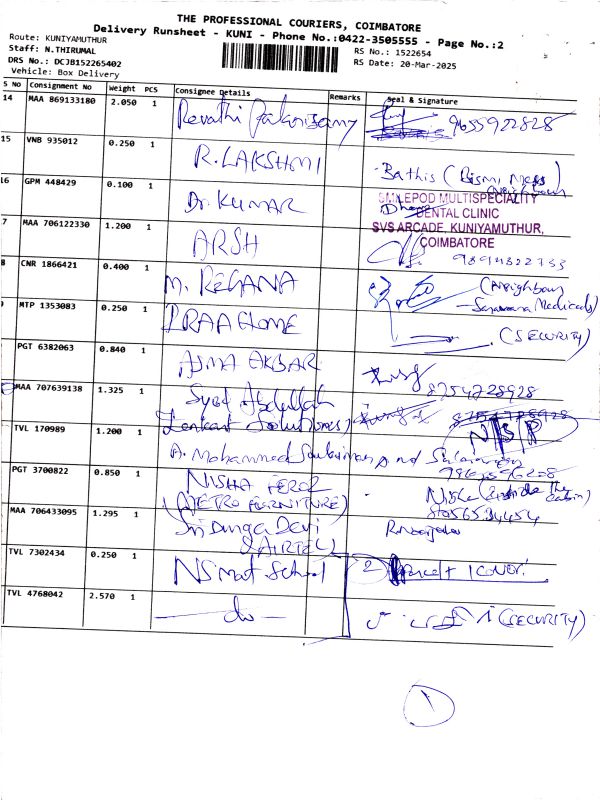 THE PROFESSIONAL COURIERS, COIMBATORE
Delivery Runsheet - KUNI - Phone No.:0422-3505555 - Page No.:2
Route: KUNIYAMUTHUR
RS No.: 1522654
Staff: N.THIRUMAL
RS Date: 20-Mar-2025
DRS No.: DCJB152265402
Vehicle: Box Delivery
S No Consignment No Weight PCS Consignee Details Remarks Seal & Signature
14 MAA 869133180 2.050 1 Revathi Palanisamy 9655922828
15 VNB 935012 0.250 1 R. LAKSHMI Bathis (Bismi Mess)
(Neighbour
16 GPM 448429 0.100 1 Dr. KUMAR
SMILEPOD MULTISPECIALITY
DENTAL CLINIC
SVS ARCADE, KUNIYAMUTHUR,
COIMBATORE
7 MAA 706122330 1.200 1 ARSH
8 CNR 1866421 0.400 1 M. REGANA (Neighbour
Medicals)
9 MTP 1353083 0.250 1 IRAA HOME (SECURITY)
PGT 6382063 0.840 1 ASMA AKBAR
8754728928
MAA 707639138 1.325 1 Syed Abdullah
8754728928
TVL 170989 1.200 1 A. Mohammed
N/S/P
PGT 3700822 0.850 1 NISHA FEROZ
(METRO FURNITURE)
MAA 706433095 1.295 1 Sri Durga Devi
(AIRTEL)
TVL 7302434 0.250 1 NS Mat School 2 Parcel + 1 cover.
TVL 4768042 2.570 1 — do — (SECURITY)
1